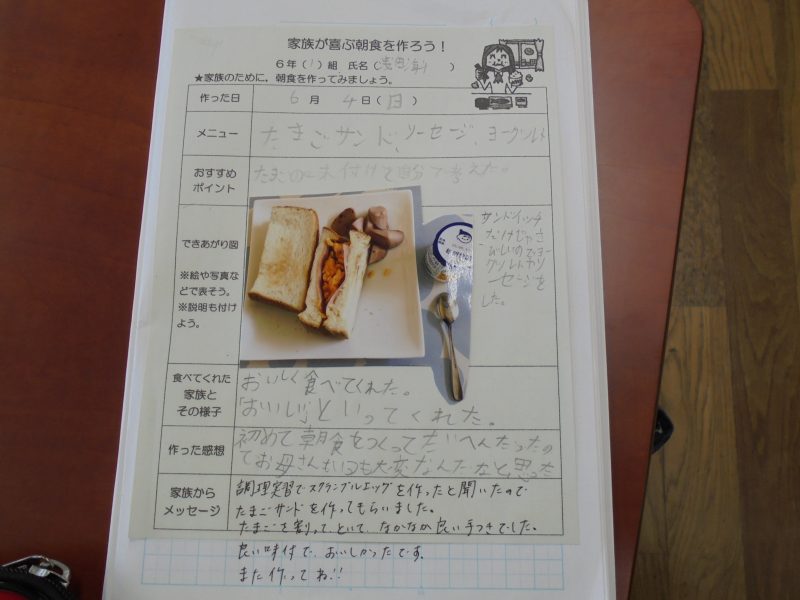 家族が喜ぶ朝食を作ろう！
6年（1）組 氏名（ ）
★家族のために、朝食を作ってみましょう。
作った日 6月 4日（日）
メニュー たまごサンド、ソーセージ、ヨーグルト
おすすめポイント たまごの味付けを自分で考えた。
できあがり図
※絵や写真などで表そう。
※説明も付けよう。
サンドイッチ
だけじゃさ
びしいのでヨー
グルトやソ
ーセージを
した。
食べてくれた家族とその様子
おいしく食べてくれた。
「おいしい」といってくれた。
作った感想
初めて朝食をつくってたいへんだったの
でお母さんもいつも大変なんだなと思った
家族からメッセージ
調理実習でスクランブルエッグを作ったと聞いたので
たまごサンドを作ってもらいました。
たまごを割って、といて、なかなか良い手つきでした。
良い味付で、おいしかったです。
また作ってね!!